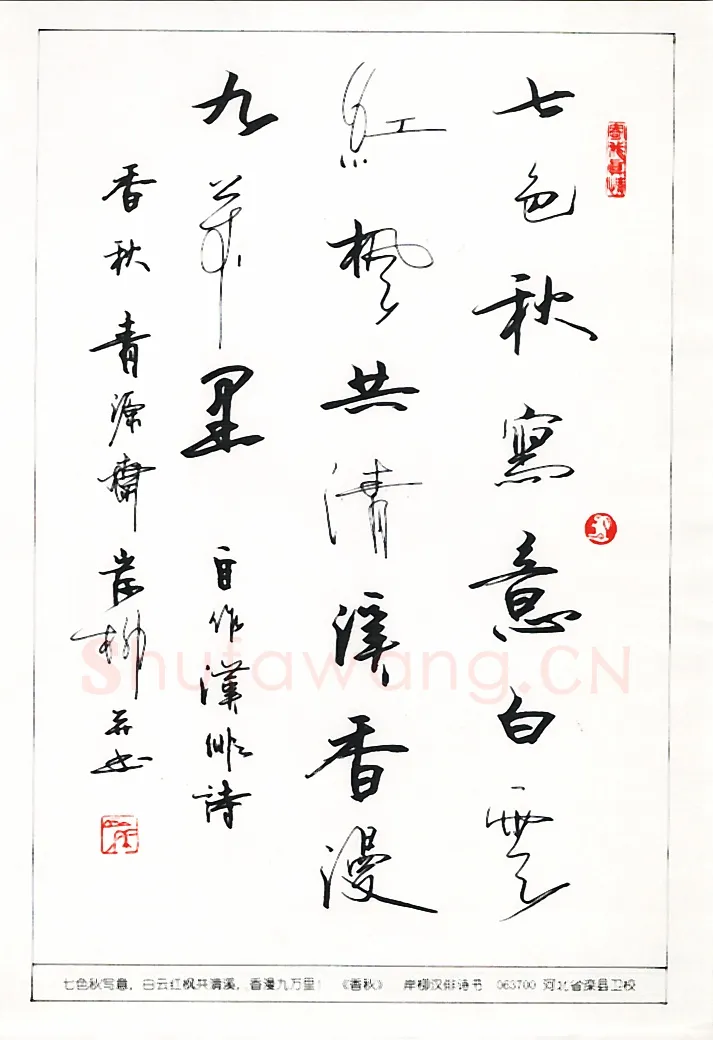 七色秋寫意白雲
紅楓共清溪香漫
九萬里 自作漢俳詩
香秋 青源齋岸柳并书
Shufawang.CN
七色秋写意，白云红枫共清溪，香漫九万里！ 《香秋》 岸柳汉俳诗书 063700 河北省滦县卫校